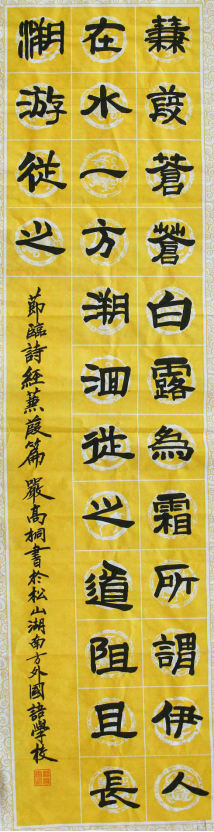 蒹葭蒼蒼白露為霜所謂伊人
在水一方溯洄從之道阻且長
溯游從之
節臨詩經蒹葭篇 嚴高桐書於松山湖南方外國語學校